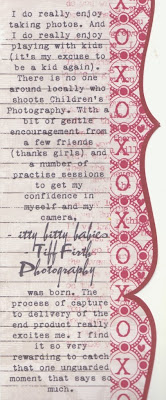 I do really enjoy
taking photos. And
I do really enjoy
playing with kids
(it's my excuse to
be a kid again).
There is no one
around locally who
shoots Children's
Photography. With a
bit of gentle
encouragement from
a few friends
(thanks girls) and a
number of
practise sessions
to get my
confidence in
myself and my
camera,
- itty bitty babies
Tiff Firth
Photography
was born. The
process of capture
to delivery of the
end product really
excites me. I find
it so very
rewarding to catch
that one unguarded
moment that says so
much.
X
O
X
O
X
O
X
O